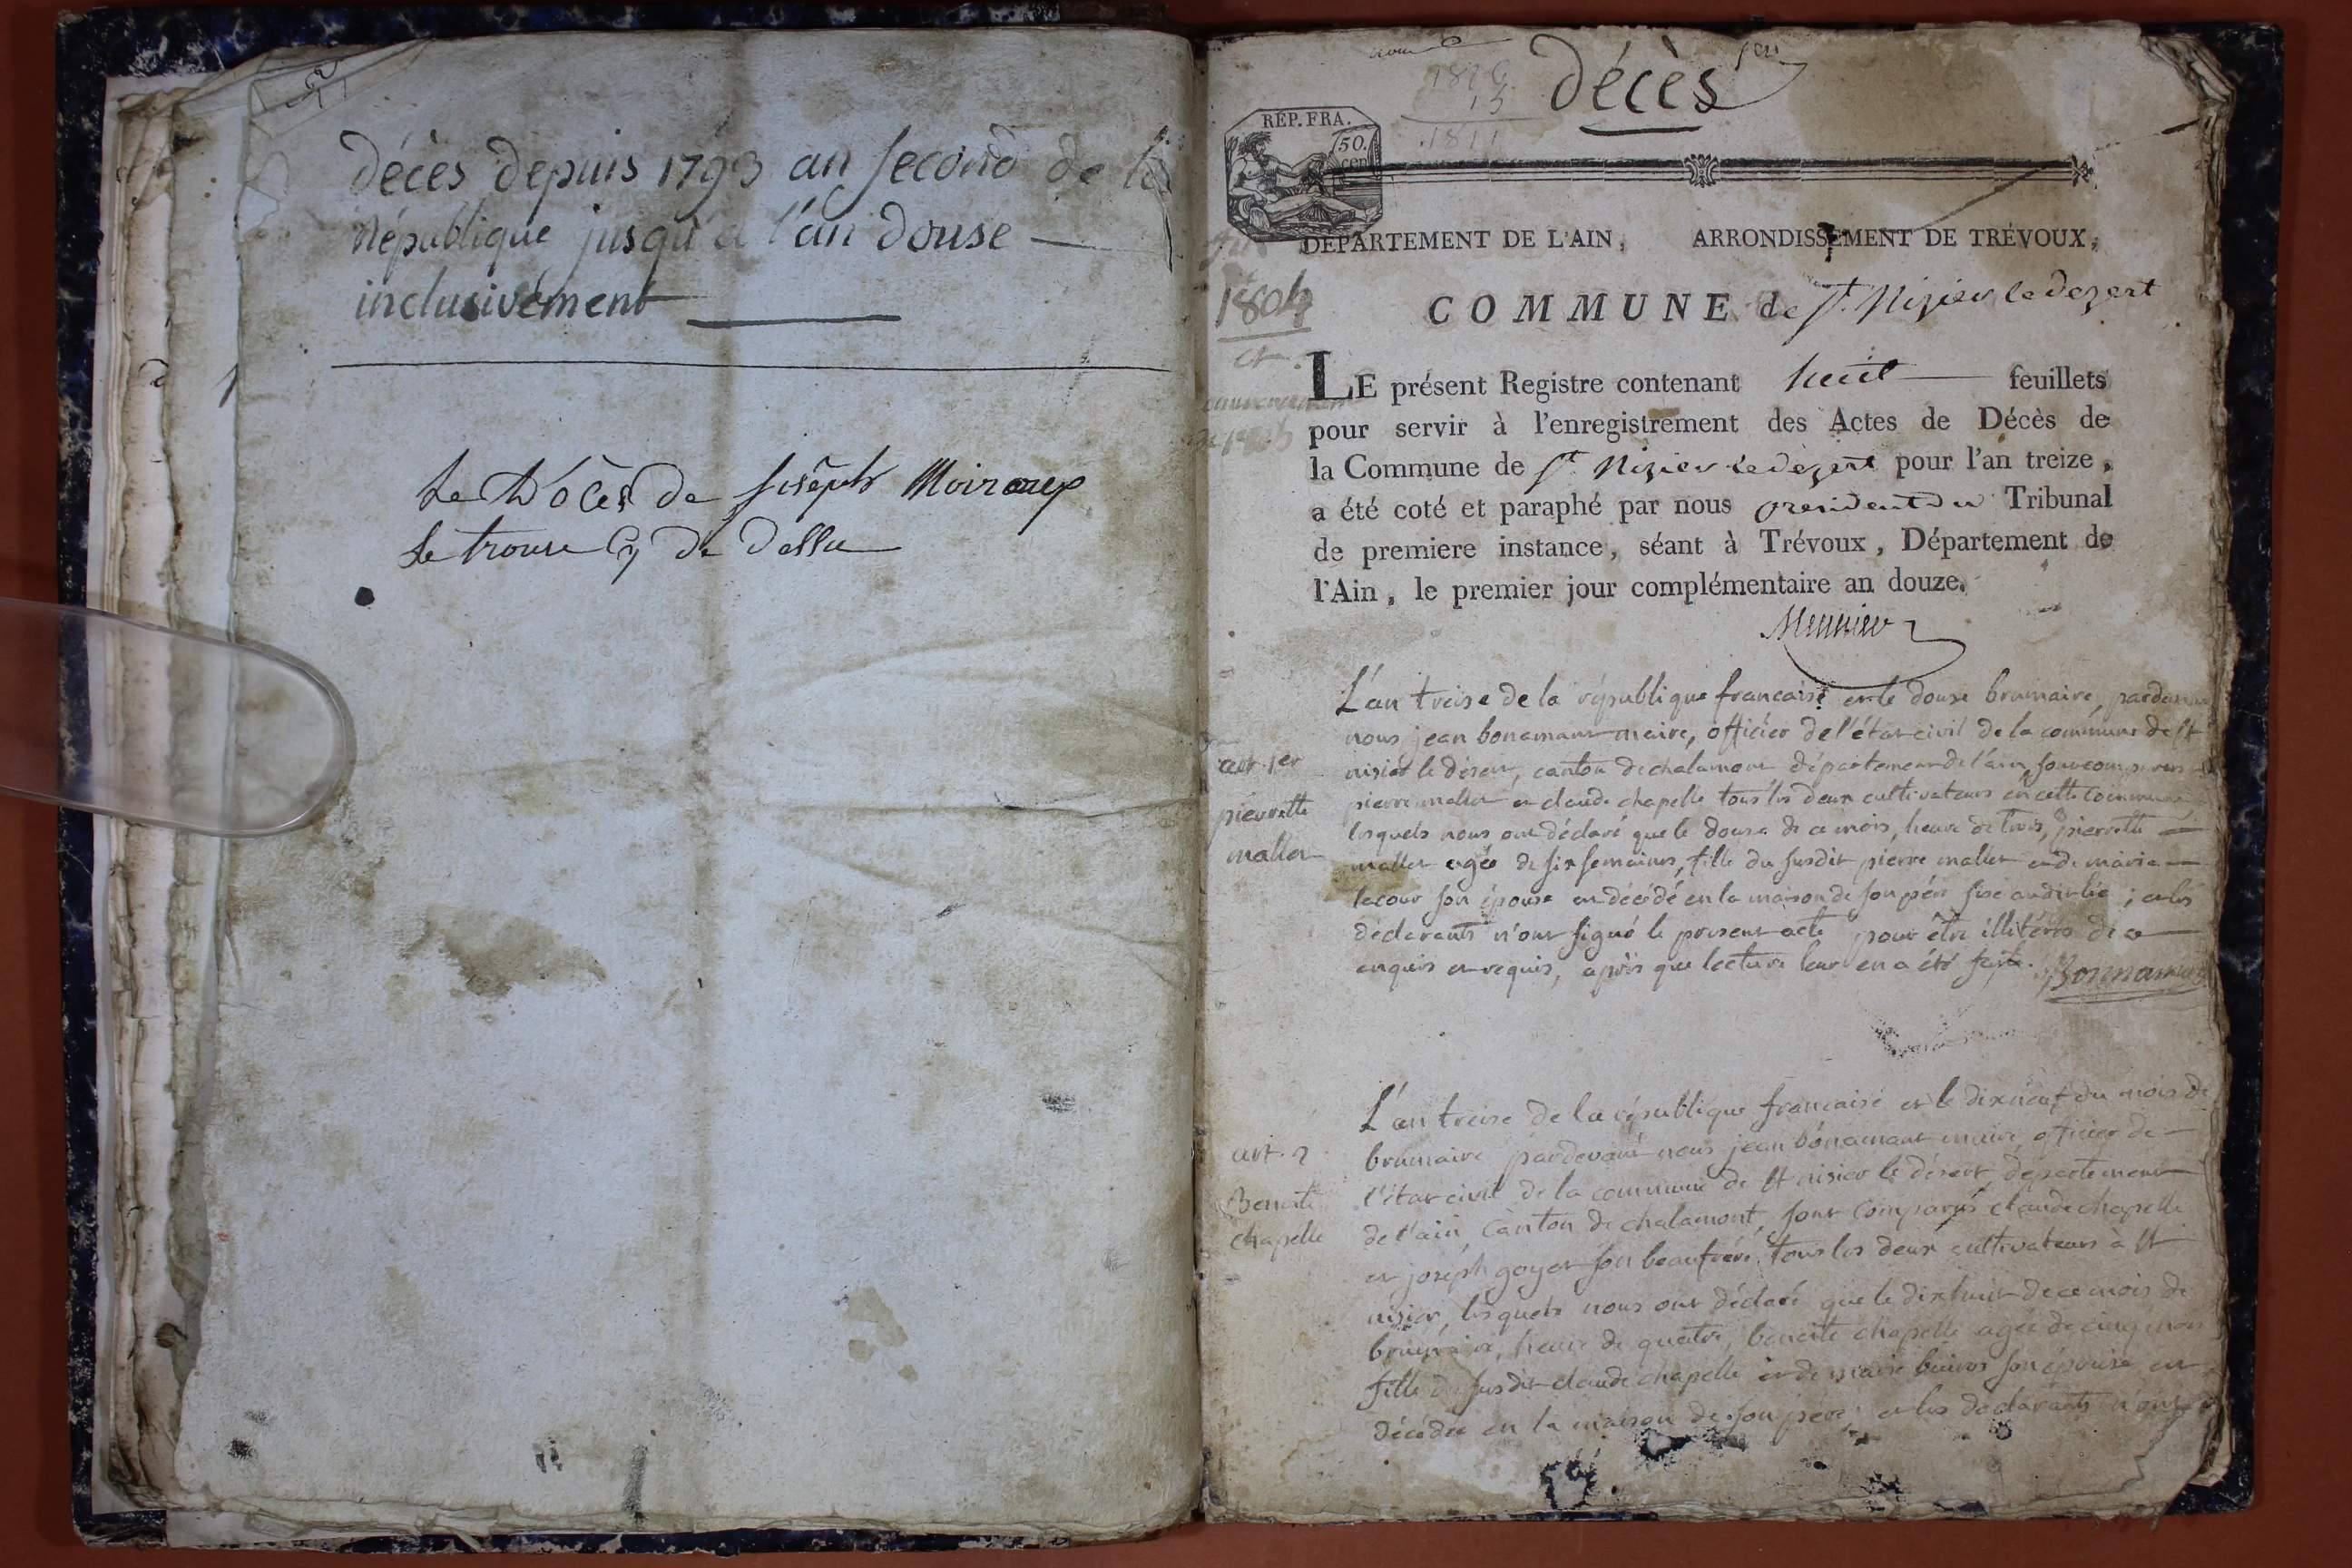 décès depuis 1793 an second de la
république jusqu'a l'an douse
inclusivement
Le Dócès de Joseph Moiroux
Se trouve Cy de dessu
décès
1826
15
1811
RÉP. FRA.
50.
cen
DÉPARTEMENT DE L'AIN, ARRONDISSEMENT DE TRÉVOUX,
1804
et
COMMUNE de St. Nizier le dezert
LE présent Registre contenant huit feuillets
pour servir à l'enregistrement des Actes de Décès de
la Commune de St. Nizier le dezert pour l'an treize,
a été coté et paraphé par nous president du Tribunal
de premiere instance, séant à Trévoux, Département de
l'Ain, le premier jour complémentaire an douze.
Munier
art. 1er
pierrette
mallet
L'an treise de la république francaise et le douse brumaire, pardevant
nous jean bonamant maire, officier de l'état civil de la commune de st
nisier le désert, canton de chalamont département de l'ain, sont comparus
pierre mallet et claude chapelle tous les deux cultivateurs en cette commune
lesquels nous ont déclaré que le douse de ce mois, heure de trois, pierrette
mallet agée de six semaines, fille du susdit pierre mallet et de marie
lacour son épouse est décédé en la maison de son pére sise audit lieu ; et les
déclarants n'ont signé le present acte pour être illitérés de ce
enquis et requis, après que lecture leur en a été faite. Bonnamant
art. 2
Benoite
chapelle
L'an treise de la république francaise et le dixneuf du mois de
brumaire pardevant nous jean bonamant maire officier de
l'état civil de la commune de st nisier le désert, département
de l'ain, canton de chalamont, sont comparus claude chapelle
et joseph goyet son beaufrére, tous les deux cultivateurs à st
nisier, lesquels nous ont déclaré que le dixhuit de ce mois de
brumaire, heure de quatre, benoite chapelle agée de cinq mois
fille du susdit claude chapelle et de marie son épouse est
décédée en la maison de son pere ; et les déclarants n'ont